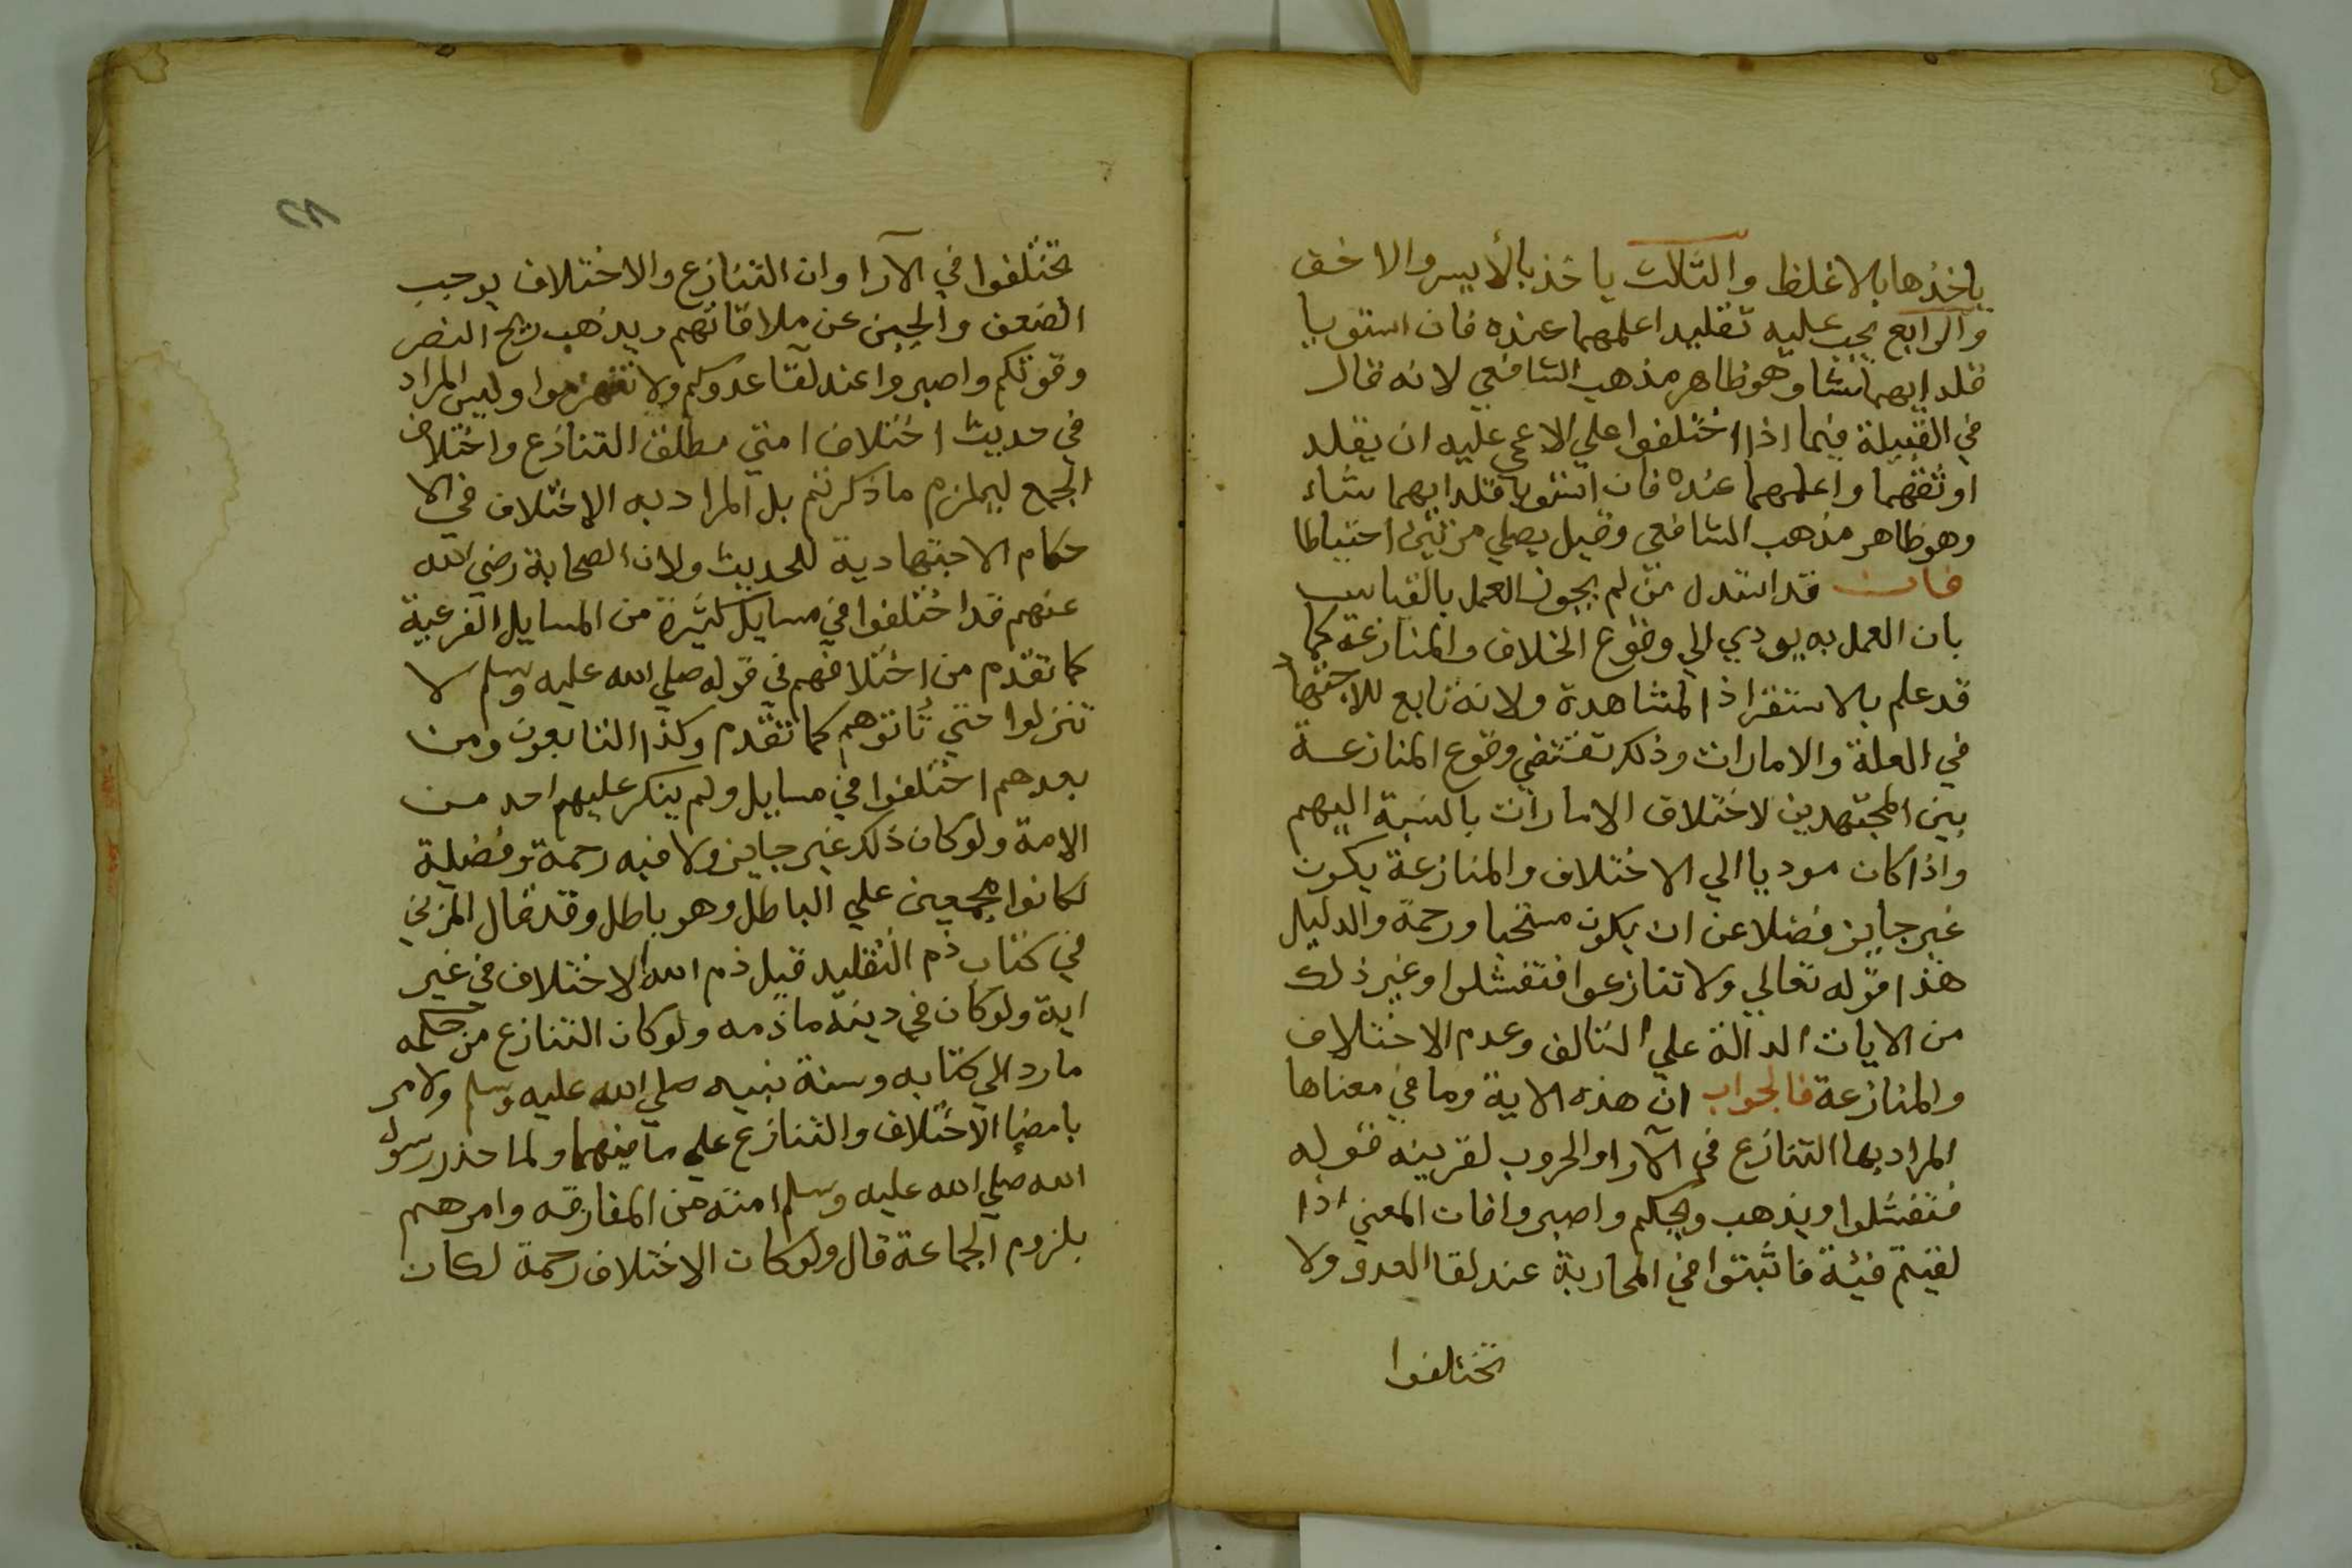 ياخذها بالاغلظ والثالث ياخذ بالأيسر والاخف
والرابع يجب عليه تقليد اعلمهما عنده فان استويا
قلد ايهما شا وهو ظاهر مذهب الشافعي لانه قال
في القبلة فيما اذا اختلفوا علي الاعمي عليه ان يقلد
اوثقهما واعلمهما عنده فان استويا قلد ايهما شاء
وهو ظاهر مذهب الشافعي وقيل يصلي مرتين احتياطا
فان قد استدل من لم يجوز العمل بالقياس
بان العمل به يودي الي وقوع الخلاف والمنازعة كما
قد علم بالاستقرا ذا المشاهدة ولانه تابع للاجتهاد
في العلة والامارات وذلك تقتضي وقوع المنازعة
بين المجتهدين لاختلاف الامارات بالنسبة اليهم
واذا كان موديا الي الاختلاف والمنازعة يكون
غير جايز فضلا عن ان يكون مستحبا ورحمة والدليل
هذا قوله تعالي ولا تنازعوا فتفشلوا وغير ذلك
من الايات الدالة علي التالف وعدم الاختلاف
والمنازعة فالجواب ان هذه الاية وما في معناها
المراد بها التنازع في الآرا والحروب لقرينه قوله
فتفشلوا ويذهب ريحكم واصبروا فان المعني اذا
لقيتم فيئة فاثبتوا في المحاربة عند لقا العدو ولا
تختلفوا
٢٨
تختلفوا في الآرا وان التنازع والاختلاف يوجب
الضعف والجبن عن ملاقاتهم ويذهب ريح النصر
وقوتكم واصبروا عند لقآ عدوكم ولا تنهزموا وليس المراد
في حديث اختلاف امتي مطلق التنازع واختلاف
الجمع ليلزم ما ذكرتم بل المراد به الاختلاف في الا
حكام الاجتهادية للحديث ولان الصحابة رضي الله
عنهم قد اختلفوا في مسايل كثيرة من المسايل الفرعية
كما تقدم من اختلافهم في قوله صلي الله عليه وسلم لا
تنزلوا حتي تاتوهم كما تقدم وكذا التابعون ومن
بعدهم اختلفوا في مسايل ولم ينكر عليهم احد من
الامة ولو كان ذلك غير جايز ولا فيه رحمة وفضيلة
لكانوا مجمعين علي الباطل وهو باطل وقد قال المزني
في كتاب ذم التقليد قبل ذم الله الاختلاف في غير
اية ولو كان في دينه ما ذمه ولو كان التنازع من حكمه
ما رد الي كتابه وسنة نبيه صلي الله عليه وسلم ولامر
بامضا الاختلاف والتنازع علي ما فيهما ولما حذر رسول
الله صلي الله عليه وسلم امته من المفارقه وامرهم
بلزوم الجماعة قال ولو كان الاختلاف رحمة لكان